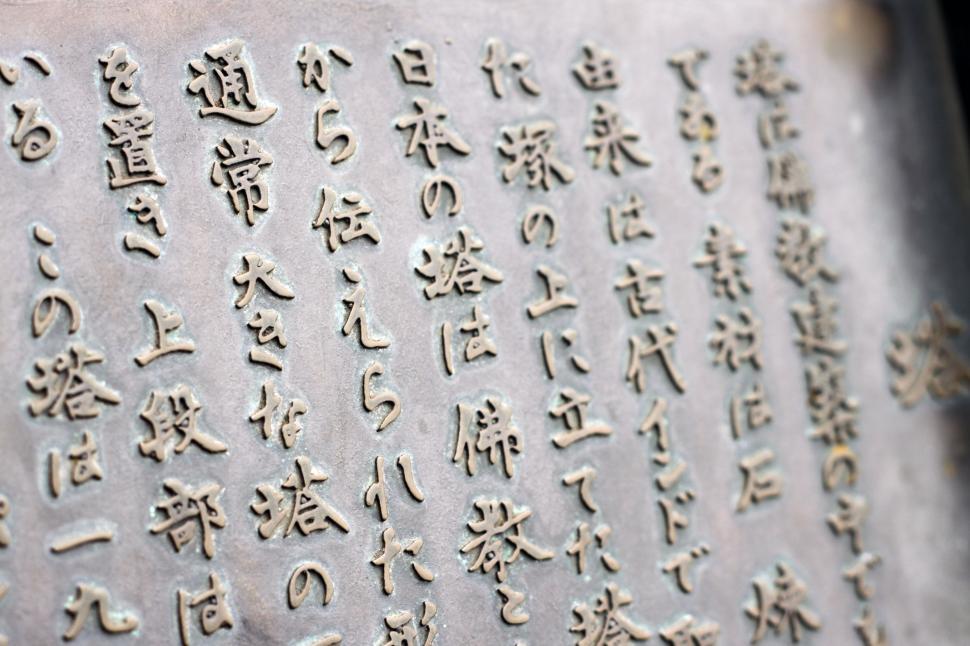 塔
塔は佛教建築の中でも
である 素材は石 煉
由来は古代インドで 聖
た塚の上に立てた塔
日本の塔は佛教と
から伝えられた形
通常大きな塔の
を置き 上段部は
いる この塔は一九